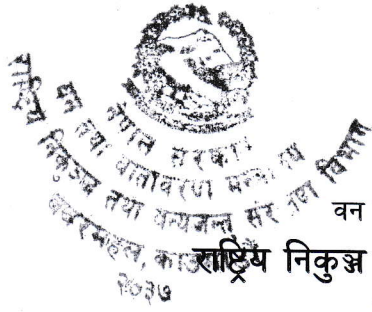 नेपाल सरकार
वन तथा वातावरण मन्त्रालय
राष्ट्रिय निकुञ्ज तथा वन्यजन्तु संरक्षण विभाग
बबरमहल,
२०३७
वन
राष्ट्रिय निकुञ्ज